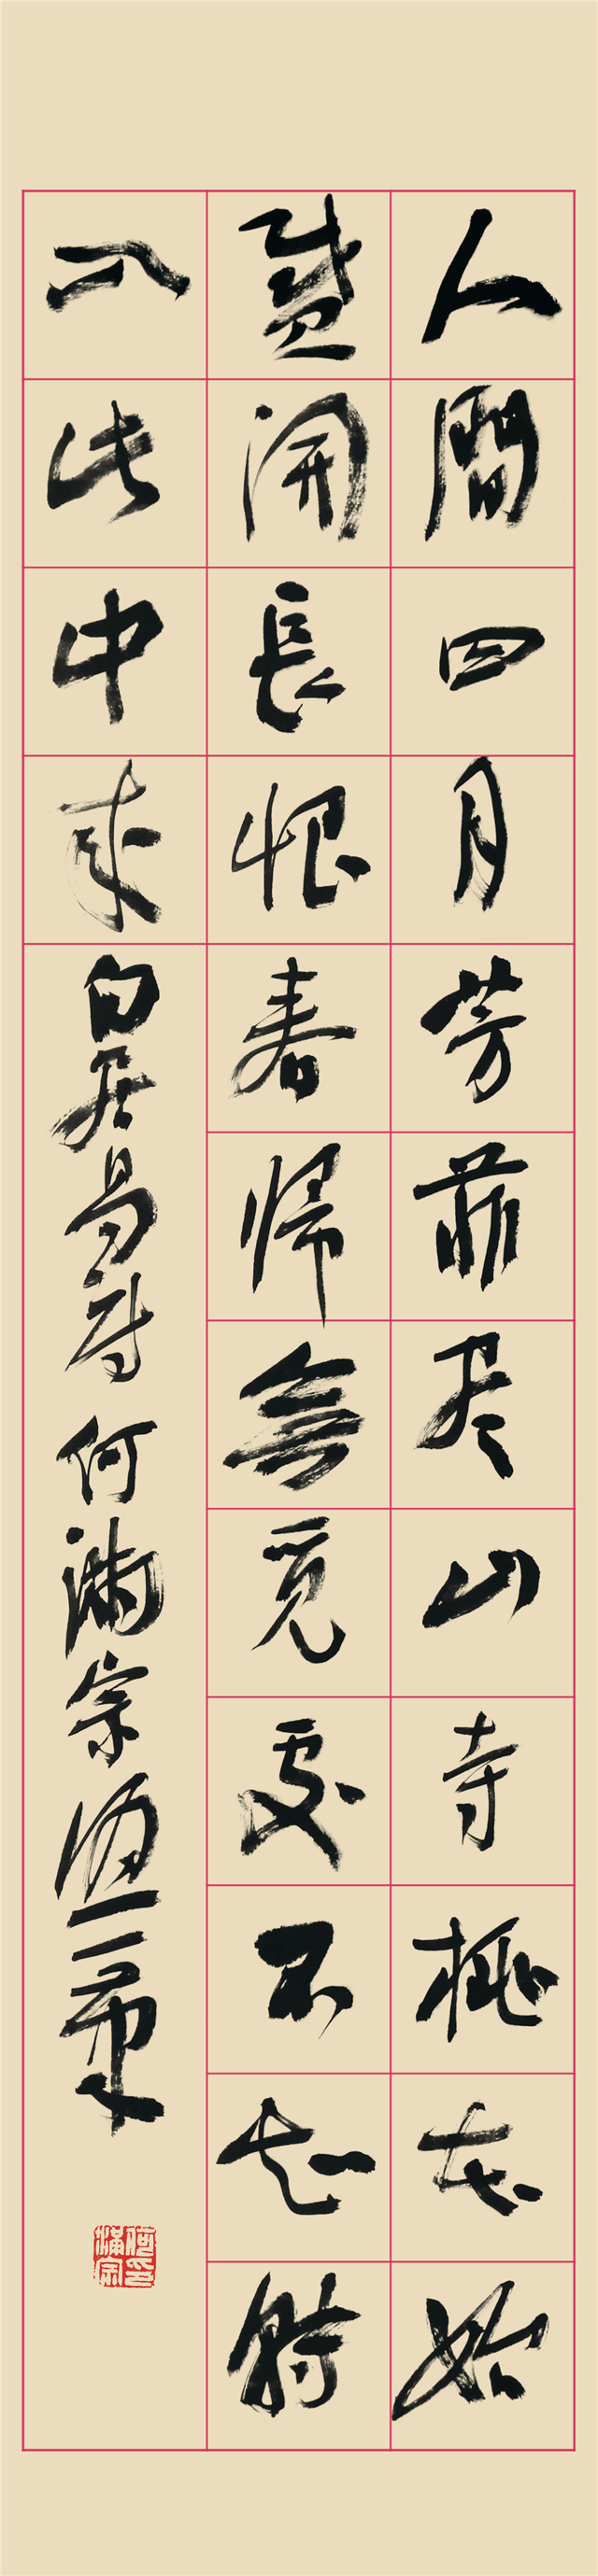 人間四月芳菲尽山寺桃花始
盛開長恨春帰無覓處不知轉
入此中来
白居易詩何滿宗
何滿宗印